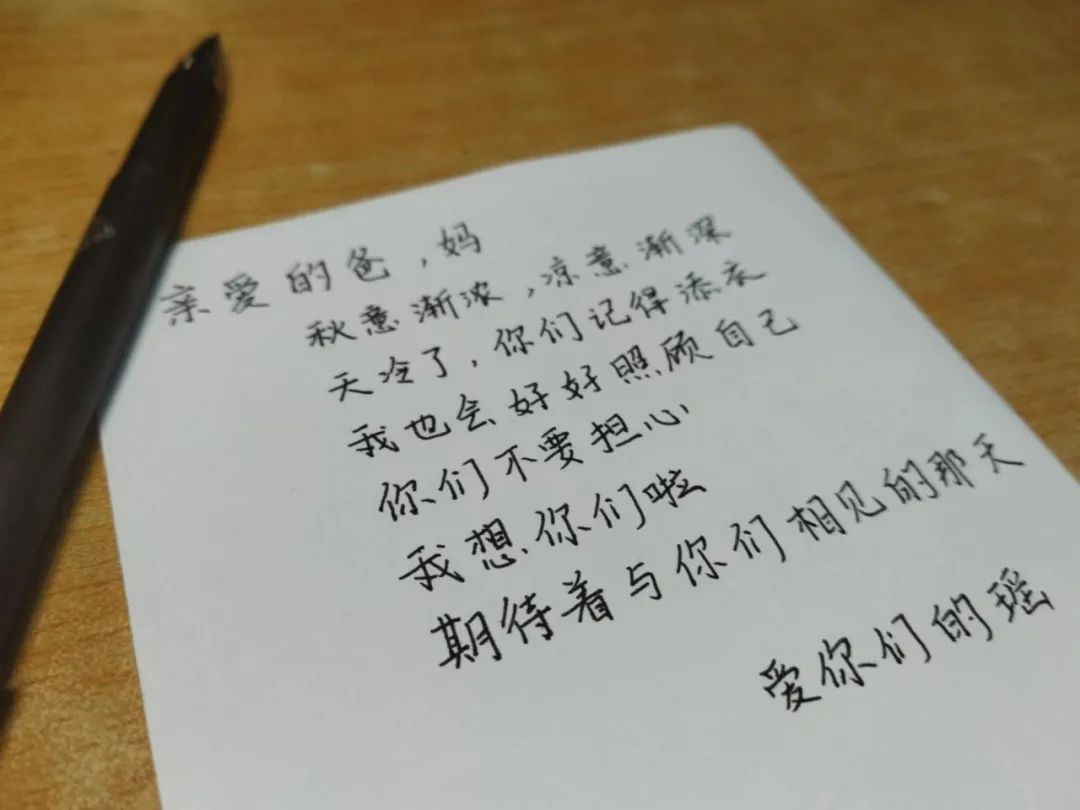 亲爱的爸，妈
秋意渐浓，凉意渐深
天冷了，你们记得添衣
我也会好好照顾自己
你们不要担心
我想你们啦
期待着与你们相见的那天
爱你们的瑶